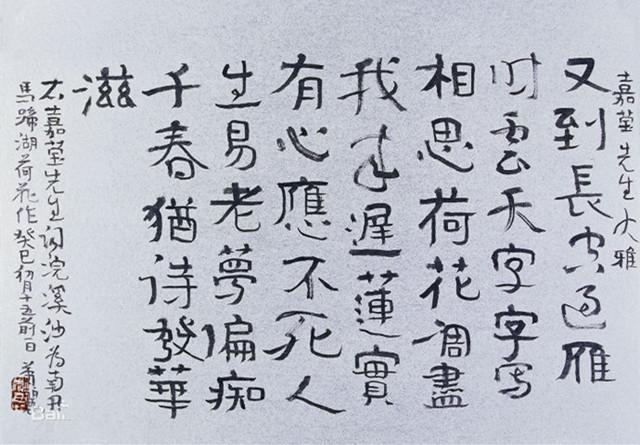 嘉瑩先生大雅
又到長空過雁
时雲天字字写
相思荷花凋盡
我来遲蓮實
有心應不死人
生易老夢偏痴
千春猶待發華
滋
右嘉瑩先生词浣溪沙为南开
馬蹄湖荷花作癸巳初月十五前日